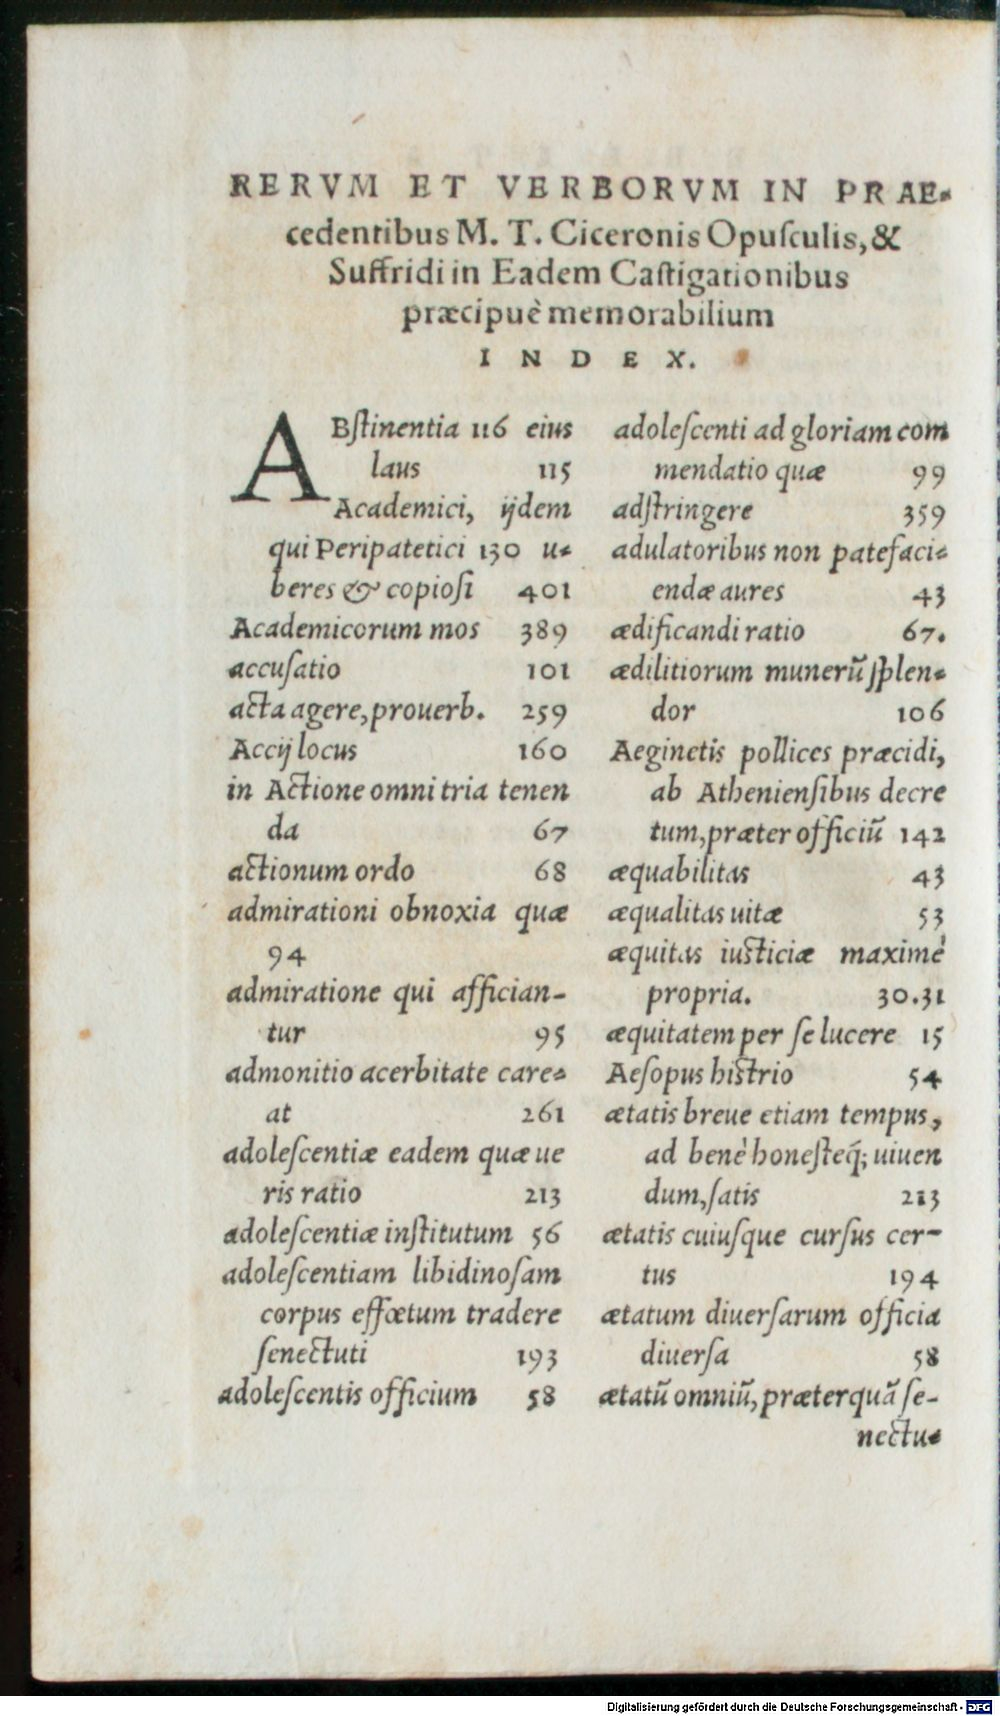 RERVM ET VERBORVM IN PRAE-
cedentibus M. T. Ciceronis Opuſculis, &
Suffridi in Eadem Caſtigationibus
præcipuè memorabilium
INDEX.
ABſtinentia 116 eius
laus 115
Academici, ijdem
qui Peripatetici 130 u-
beres & copioſi 401
Academicorum mos 389
accuſatio 101
acta agere, prouerb. 259
Accij locus 160
in Actione omni tria tenen
da 67
actionum ordo 68
admirationi obnoxia quæ
94
admiratione qui affician-
tur 95
admonitio acerbitate care-
at 261
adoleſcentiæ eadem quæ ue
ris ratio 213
adoleſcentiæ inſtitutum 56
adoleſcentiam libidinoſam
corpus effœtum tradere
ſenectuti 193
adoleſcentis officium 58
adoleſcenti ad gloriam com
mendatio quæ 99
adſtringere 359
adulatoribus non patefaci-
endæ aures 43
ædificandi ratio 67.
ædilitiorum munerũ ſplen-
dor 106
Aeginetis pollices præcidi,
ab Athenienſibus decre
tum, præter officiũ 142
æquabilitas 43
æqualitas uitæ 53
æquitas iusticiæ maximè
propria. 30.31
æquitatem per ſe lucere 15
Aeſopus histrio 54
ætatis breue etiam tempus,
ad benè honeſteq́; uiuen
dum, ſatis 213
ætatis cuiuſque curſus cer-
tus 194
ætatum diuerſarum officia
diuerſa 58
ætatũ omniũ, præterquã ſe-
nectu-
Digitalisierung gefördert durch die Deutsche Forschungsgemeinschaft - DFG